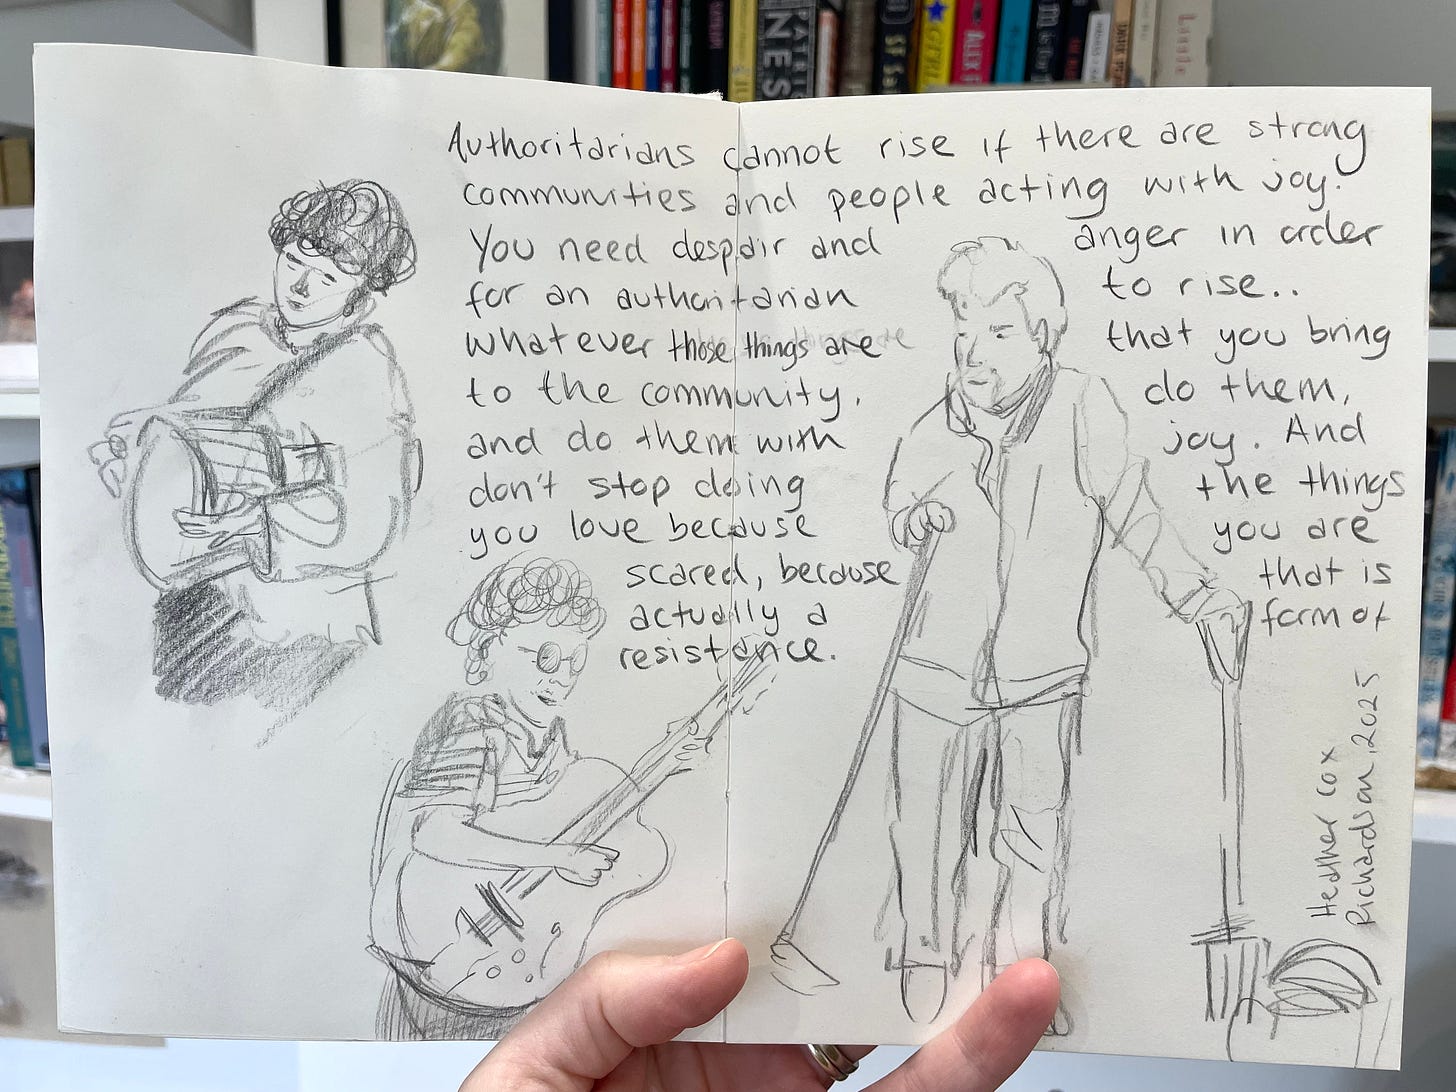 Authoritarians cannot rise if there are strong
communities and people acting with joy.
You need despair and anger in order
for an authoritarian to rise..
whatever those things are that you bring
to the community, do them,
and do them with joy. And
don't stop doing the things
you love because you are
scared, because that is
actually a form of
resistance.
Heather Cox
Richardson, 2025